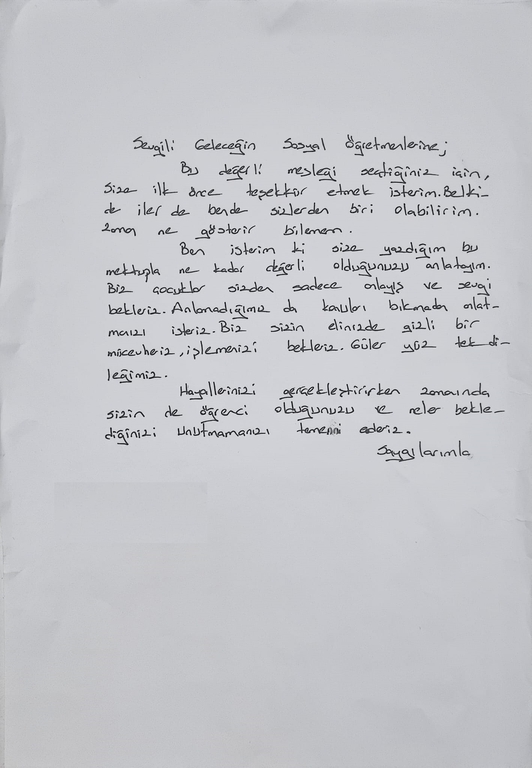 Sevgili Geleceğin Sosyal Öğretmenlerine;
Bu değerli mesleği seçtiğiniz için,
Size ilk önce teşekkür etmek isterim. Belki-
de iler de bende sizlerden biri olabilirim.
Zaman ne gösterir bilemem.
Ben isterim ki size yazdığım bu
mektupla ne kadar değerli olduğunuzu anlatayım.
Biz çocuklar sizden sadece anlayış ve sevgi
bekleriz. Anlamadığımız da konuları bıkmadan anlat-
manızı isteriz. Biz sizin elinizde gizli bir
mücevheriz, işlemenizi bekleriz. Güler yüz tek di-
leğimiz.
Hayallerinizi gerçekleştirirken zamanında
sizin de öğrenci olduğunuzu ve neler bekle-
diğinizi unutmamanızı temenni ederiz.
Saygılarımla